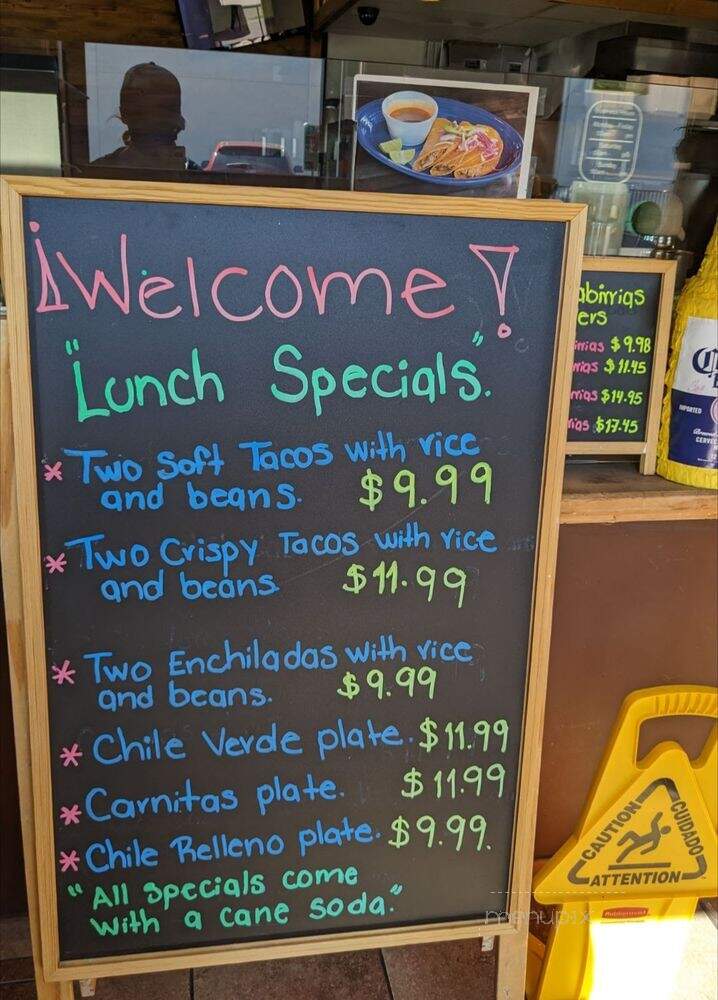 ¡Welcome!
"Lunch Specials".
* Two Soft Tacos with rice
and beans. $9.99
* Two Crispy Tacos with rice
and beans $11.99
* Two Enchiladas with rice
and beans. $9.99
* Chile Verde plate. $11.99
* Carnitas plate. $11.99
* Chile Relleno plate. $9.99.
"All specials come
with a cane soda."
$9.98
$11.45
$14.95
$17.45
IMPORTED
CAUTION
CUIDADO
ATTENTION
Rubbermaid
menupix